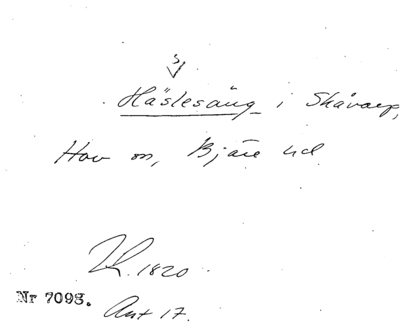 s
Häslesäng i Skåvarp,
Hov sn, Bjäre hd
1820.
Nr 7093.
Ant 17.